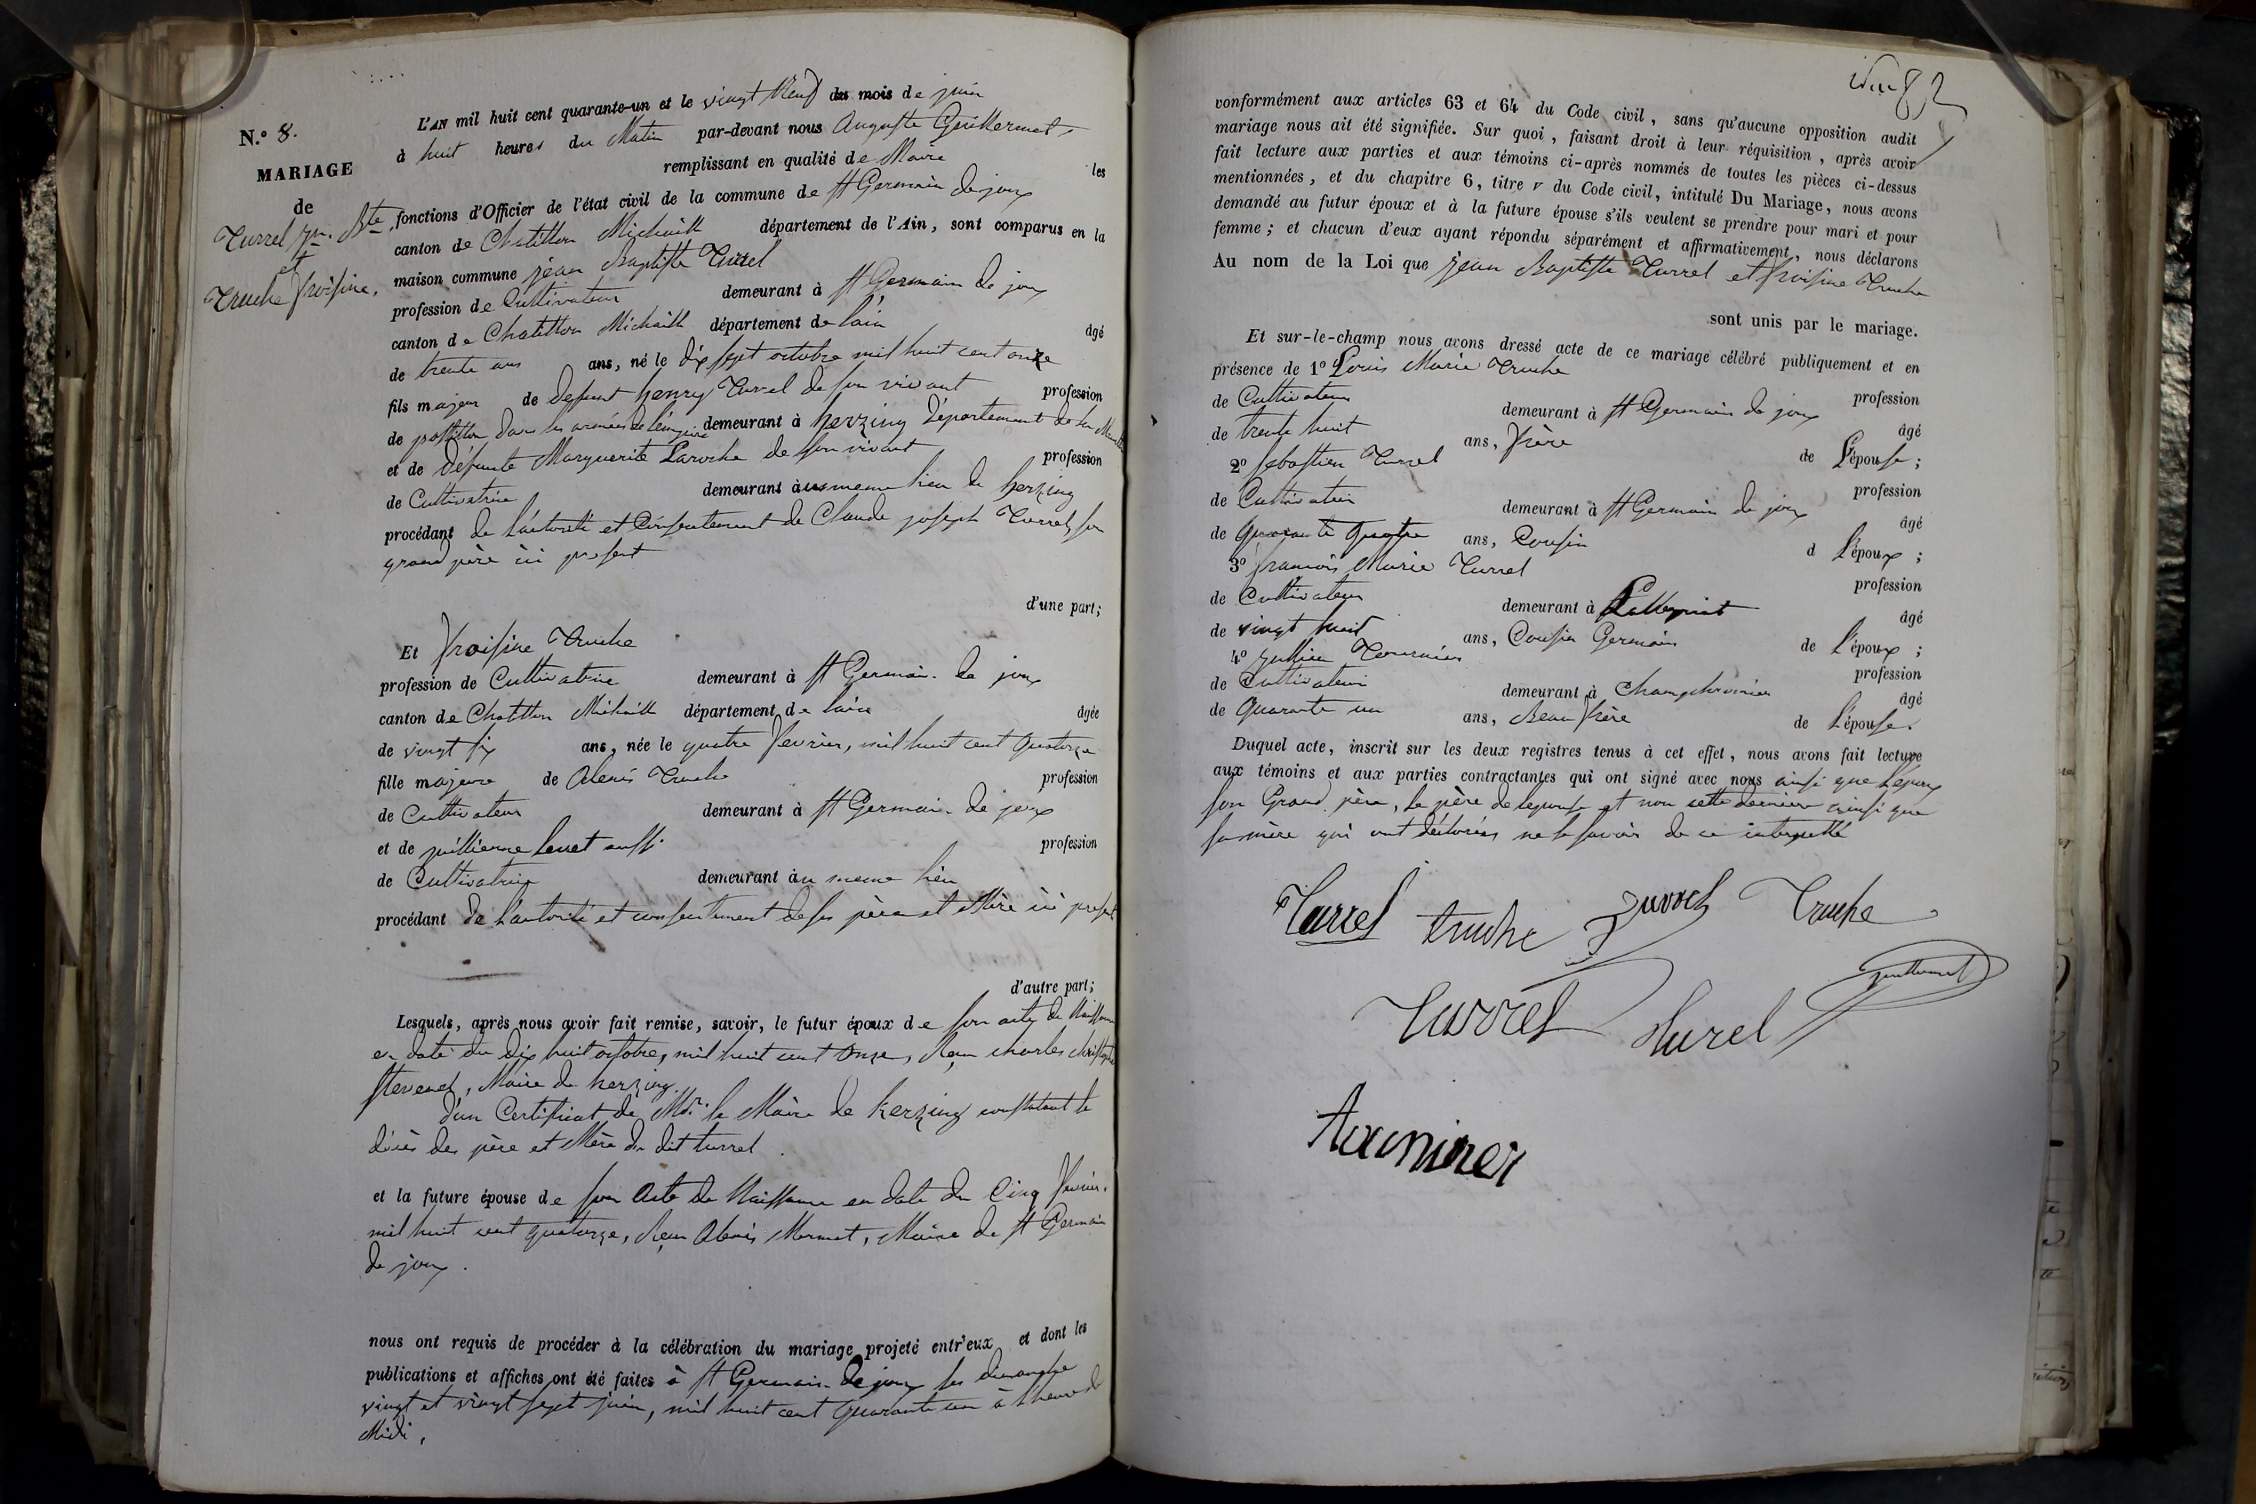 N.° 8.
MARIAGE
de
Turrel jn. Bte
et
Truche froisine.
L'AN mil huit cent quarante-un et le vingt Neuf du mois de juin
à huit heures du Matin par-devant nous Auguste Guillermet
remplissant en qualité de Maire les
fonctions d'Officier de l'état civil de la commune de St Germain de joux
canton de Chatillon Michaille département de l'Ain, sont comparus en la
maison commune jean Baptiste Turrel
profession de Cultivateur demeurant à St Germain de joux
canton de Chatillon Michaille département de l'ain âgé
de trente ans ans, né le dix sept octobre mil huit cent onze
fils majeur de defunt henry Turrel de son vivant profession
de postillon dans les armées de l'empire demeurant à herzing Département de la
et de défunte Marguerite Laroche de son vivant profession
de Cultivatrice demeurant au meme lieu de herzing
procédant de l'autorité et Consentement de Claude joseph Turrel, son
grand père ici present
d'une part;
Et froisine Truche
profession de Cultivatrice demeurant à St Germain de joux
canton de Chatillon Michaille département de l'ain âgée
de vingt six ans, née le quatre fevrier, mil huit cent quatorze
fille majeure de Alexis Truche profession
de Cultivateur demeurant à St Germain de joux
et de juillienne profession
de Cultivatrice demeurant au meme lieu
procédant de l'autorité et consentement de ses père et Mère ici present
d'autre part;
Lesquels, après nous avoir fait remise, savoir, le futur époux de son acte de Naissance
en date du dix huit octobre, mil huit cent onze, Reçu charles christophe
Stevenel, Maire de herzing.
d'un Certificat de Mr. le Maire de herzing constatant le
décès des père et Mère du dit turrel.
et la future épouse de son Acte de Naissance en date du Cinq fevrier.
mil huit cent quatorze, Reçu Alexis Mermet, Maire de St Germain
de joux.
nous ont requis de procéder à la célébration du mariage projeté entr'eux et dont les
publications et affiches ont été faites à St Germain de joux les dimanche
vingt et vingt sept juin, mil huit cent quarante un à l'heure de
Midi,
82
conformément aux articles 63 et 64 du Code civil, sans qu'aucune opposition audit
mariage nous ait été signifiée. Sur quoi, faisant droit à leur réquisition, après avoir
fait lecture aux parties et aux témoins ci-après nommés de toutes les pièces ci-dessus
mentionnées, et du chapitre 6, titre v du Code civil, intitulé Du Mariage, nous avons
demandé au futur époux et à la future épouse s'ils veulent se prendre pour mari et pour
femme; et chacun d'eux ayant répondu séparément et affirmativement, nous déclarons
Au nom de la Loi que jean Baptiste Turrel et froisine Truche
sont unis par le mariage.
Et sur-le-champ nous avons dressé acte de ce mariage célébré publiquement et en
présence de 1° Louis Marie Truche profession
de Cultivateur demeurant à St Germain de joux âgé
de trente huit ans, frère de l'épouse;
2° Sebastien Turrel profession
de Cultivateur demeurant à St Germain de joux âgé
de quarante quatre ans, Cousin d l'époux;
3° francois Marie Turrel profession
de Cultivateur demeurant à Lalleyriat âgé
de vingt huit ans, Cousin Germain de l'époux;
4° jullien Tournier profession
de Cultivateur demeurant à Champfromier âgé
de quarante un ans, Beau frère de l'épouse.
Duquel acte, inscrit sur les deux registres tenus à cet effet, nous avons fait lecture
aux témoins et aux parties contractantes qui ont signé avec nous ainsi que l'epoux
son Grand père, le père de lepouse et non cette derniere ainsi que
sa mère qui ont déclarés ne le savoir de ce interpellé
Turrel truche Turrel Truche
Guillermet
Turrel turel
tournier